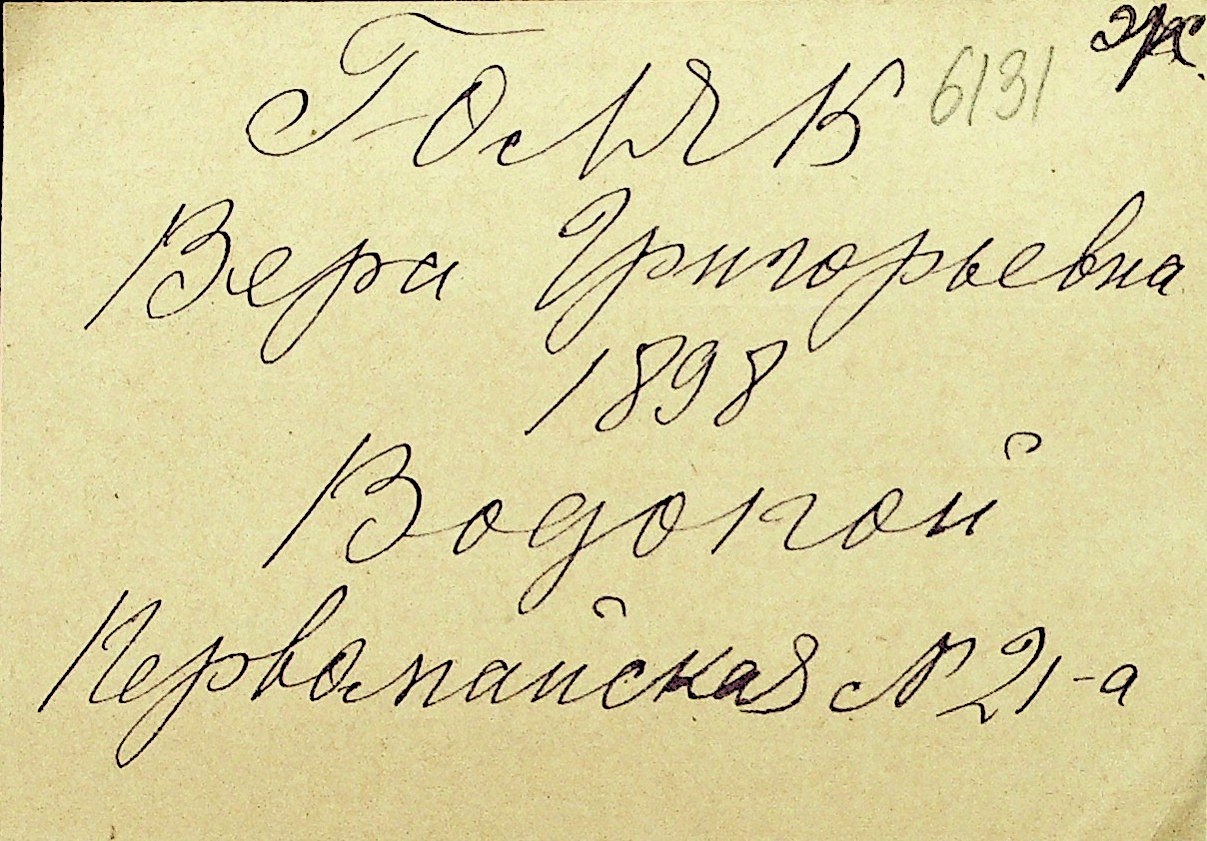 ГОЛЯК 6131
Вера Григорьевна
1898
Водопой
Первомайская N 21-а